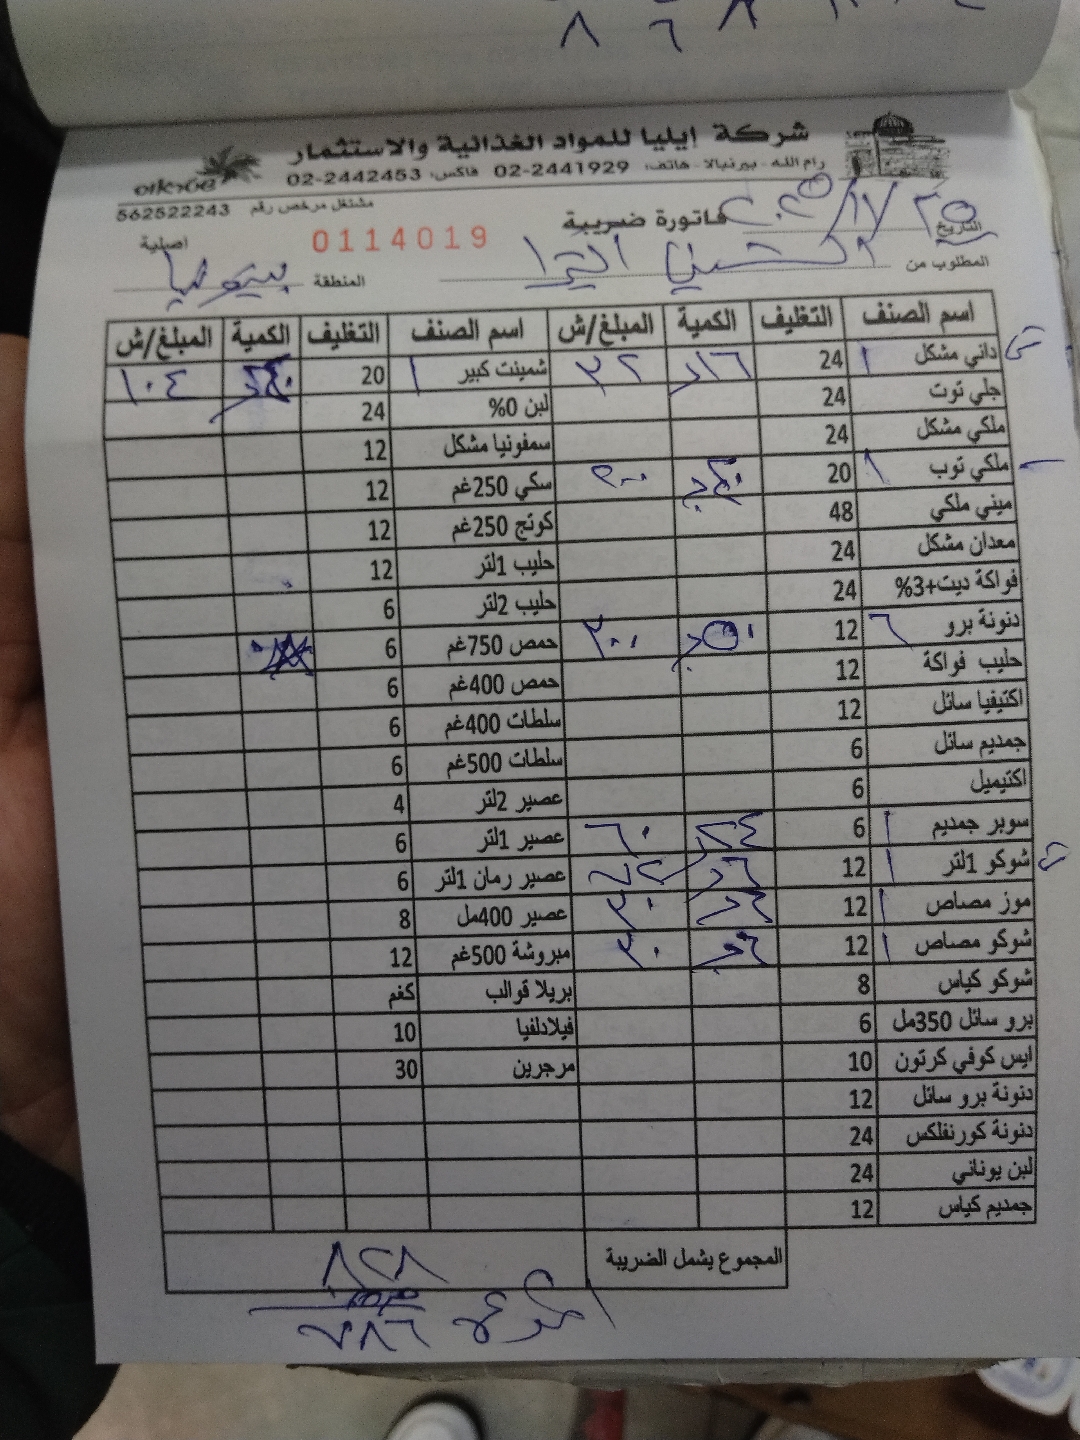 شركة إيليا للمواد الغذائية والاستثمار
رام الله - بيرنبالا - هاتف: 02-2441929 فاكس: 02-2442453
مشتغل مرخص رقم 562522243
التاريخ ٢٥/١٢/٢٠٢٥ فاتورة ضريبية 0114019 اصلية
المطلوب من المنطقة بيتونيا
اسم الصنف التغليف الكمية المبلغ/ش اسم الصنف التغليف الكمية المبلغ/ش
داني مشكل ١ 24 ٣٢ شمينت كبير ١ 20 ١٠٤
جلي توت 24 لبن 0% 24
ملكي مشكل 24 سمفونيا مشكل 12
ملكي توب ١ 20 ٢٠٠ سكي 250غم 12
ميني ملكي 48 كوتج 250غم 12
معدان مشكل 24 حليب 1لتر 12
فواكة ديت+3% 24 حليب 2لتر 6
دنونة برو ٦ 12 ٣٠٠ حمص 750غم 6
حليب فواكة 12 حمص 400غم 6
اكتيفيا سائل 12 سلطات 400غم 6
جمديم سائل 6 سلطات 500غم 6
اكتيميل 6 عصير 2لتر 4
سوبر جمديم ١ 6 ٦٠ عصير 1لتر 6
شوكو 1لتر ١ 12 ٧٢ عصير رمان 1لتر 6
موز مصاص ١ 12 ٣٠ عصير 400مل 8
شوكو مصاص ١ 12 ٣٠ مبروشة 500غم 12
شوكو كياس 8 بريلا قوالب كغم
برو سائل 350مل 6 فيلادلفيا 10
ايس كوفي كرتون 10 مرجرين 30
دنونة برو سائل 12
دنونة كورنفلكس 24
لبن يوناني 24
جمديم كياس 12
المجموع يشمل الضريبة ٨٢٨
٧٨٦